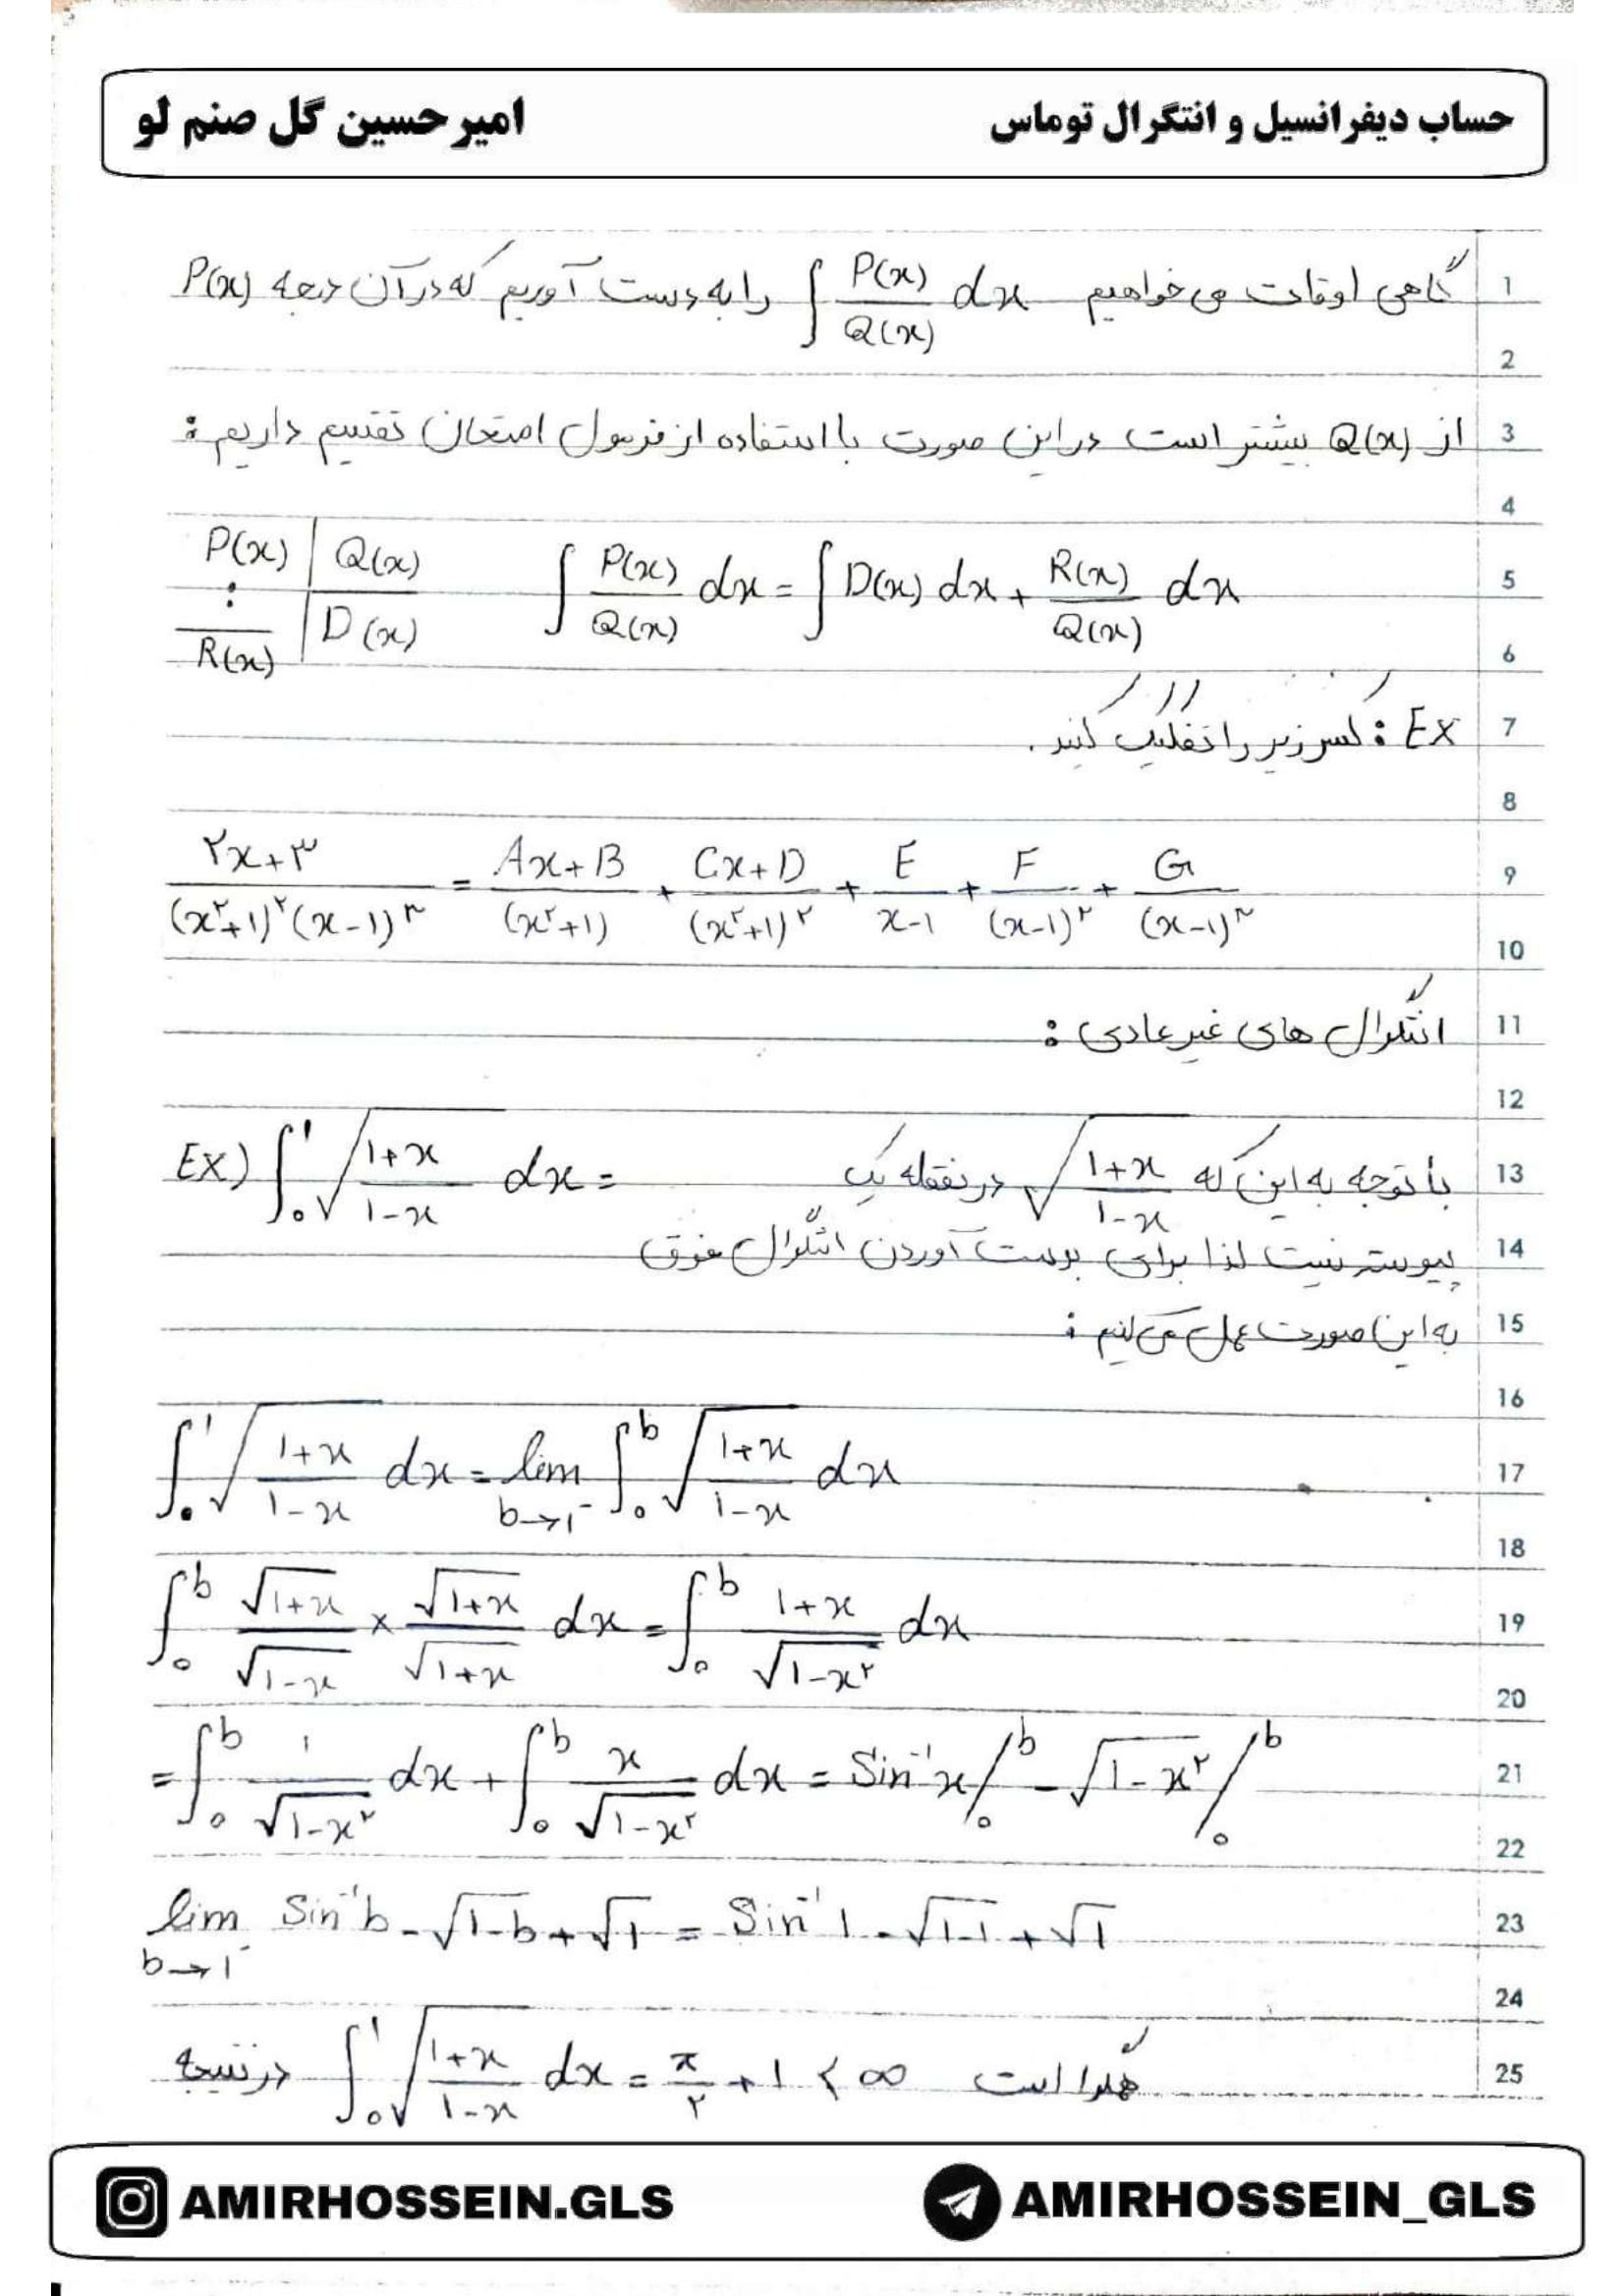 حساب دیفرانسیل و انتگرال توماس
امیرحسین گل صنم لو
1 گاهی اوقات می‌خواهیم ∫ P(x)/Q(x) dx را به دست آوریم که در آن درجه P(x)
2
3 از Q(x) بیشتر است در این صورت با استفاده از فرمول امتحان تقسیم داریم :
4
P(x) | Q(x)
5 ⋮ | D(x) ∫ P(x)/Q(x) dx = ∫ D(x) dx + R(x)/Q(x) dx
6 R(x)
7 EX : کسر زیر را تفکیک کنید .
8
9 (۲x+۳)/((x^۲+1)^۲(x-1)^۳) = (Ax+B)/(x^۲+1) + (Cx+D)/(x^۲+1)^۲ + E/(x-1) + F/(x-1)^۲ + G/(x-1)^۳
10
11 انتگرال های غیرعادی :
12
13 با توجه به این که √((1+x)/(1-x)) در نقطه یک EX) ∫₀^۱ √((1+x)/(1-x)) dx =
14 پیوسته نیست لذا برای بدست آوردن انتگرال فوق
15 به این صورت عمل می‌کنیم :
16
17 ∫₀^۱ √((1+x)/(1-x)) dx = lim b→1⁻ ∫₀^b √((1+x)/(1-x)) dx
18
19 ∫₀^b √(1+x)/√(1-x) × √(1+x)/√(1+x) dx = ∫₀^b (1+x)/√(1-x^۲) dx
20
21 = ∫₀^b 1/√(1-x^۲) dx + ∫₀^b x/√(1-x^۲) dx = Sin⁻¹x /₀^b - √(1-x^۲) /₀^b
22
23 lim b→1⁻ Sin⁻¹b - √(1-b) + √1 = Sin⁻¹1 - √(1-1) + √1
24
25 در نتیجه ∫₀^۱ √((1+x)/(1-x)) dx = π/۲ + 1 < ∞ همگرا است
AMIRHOSSEIN.GLS
AMIRHOSSEIN_GLS